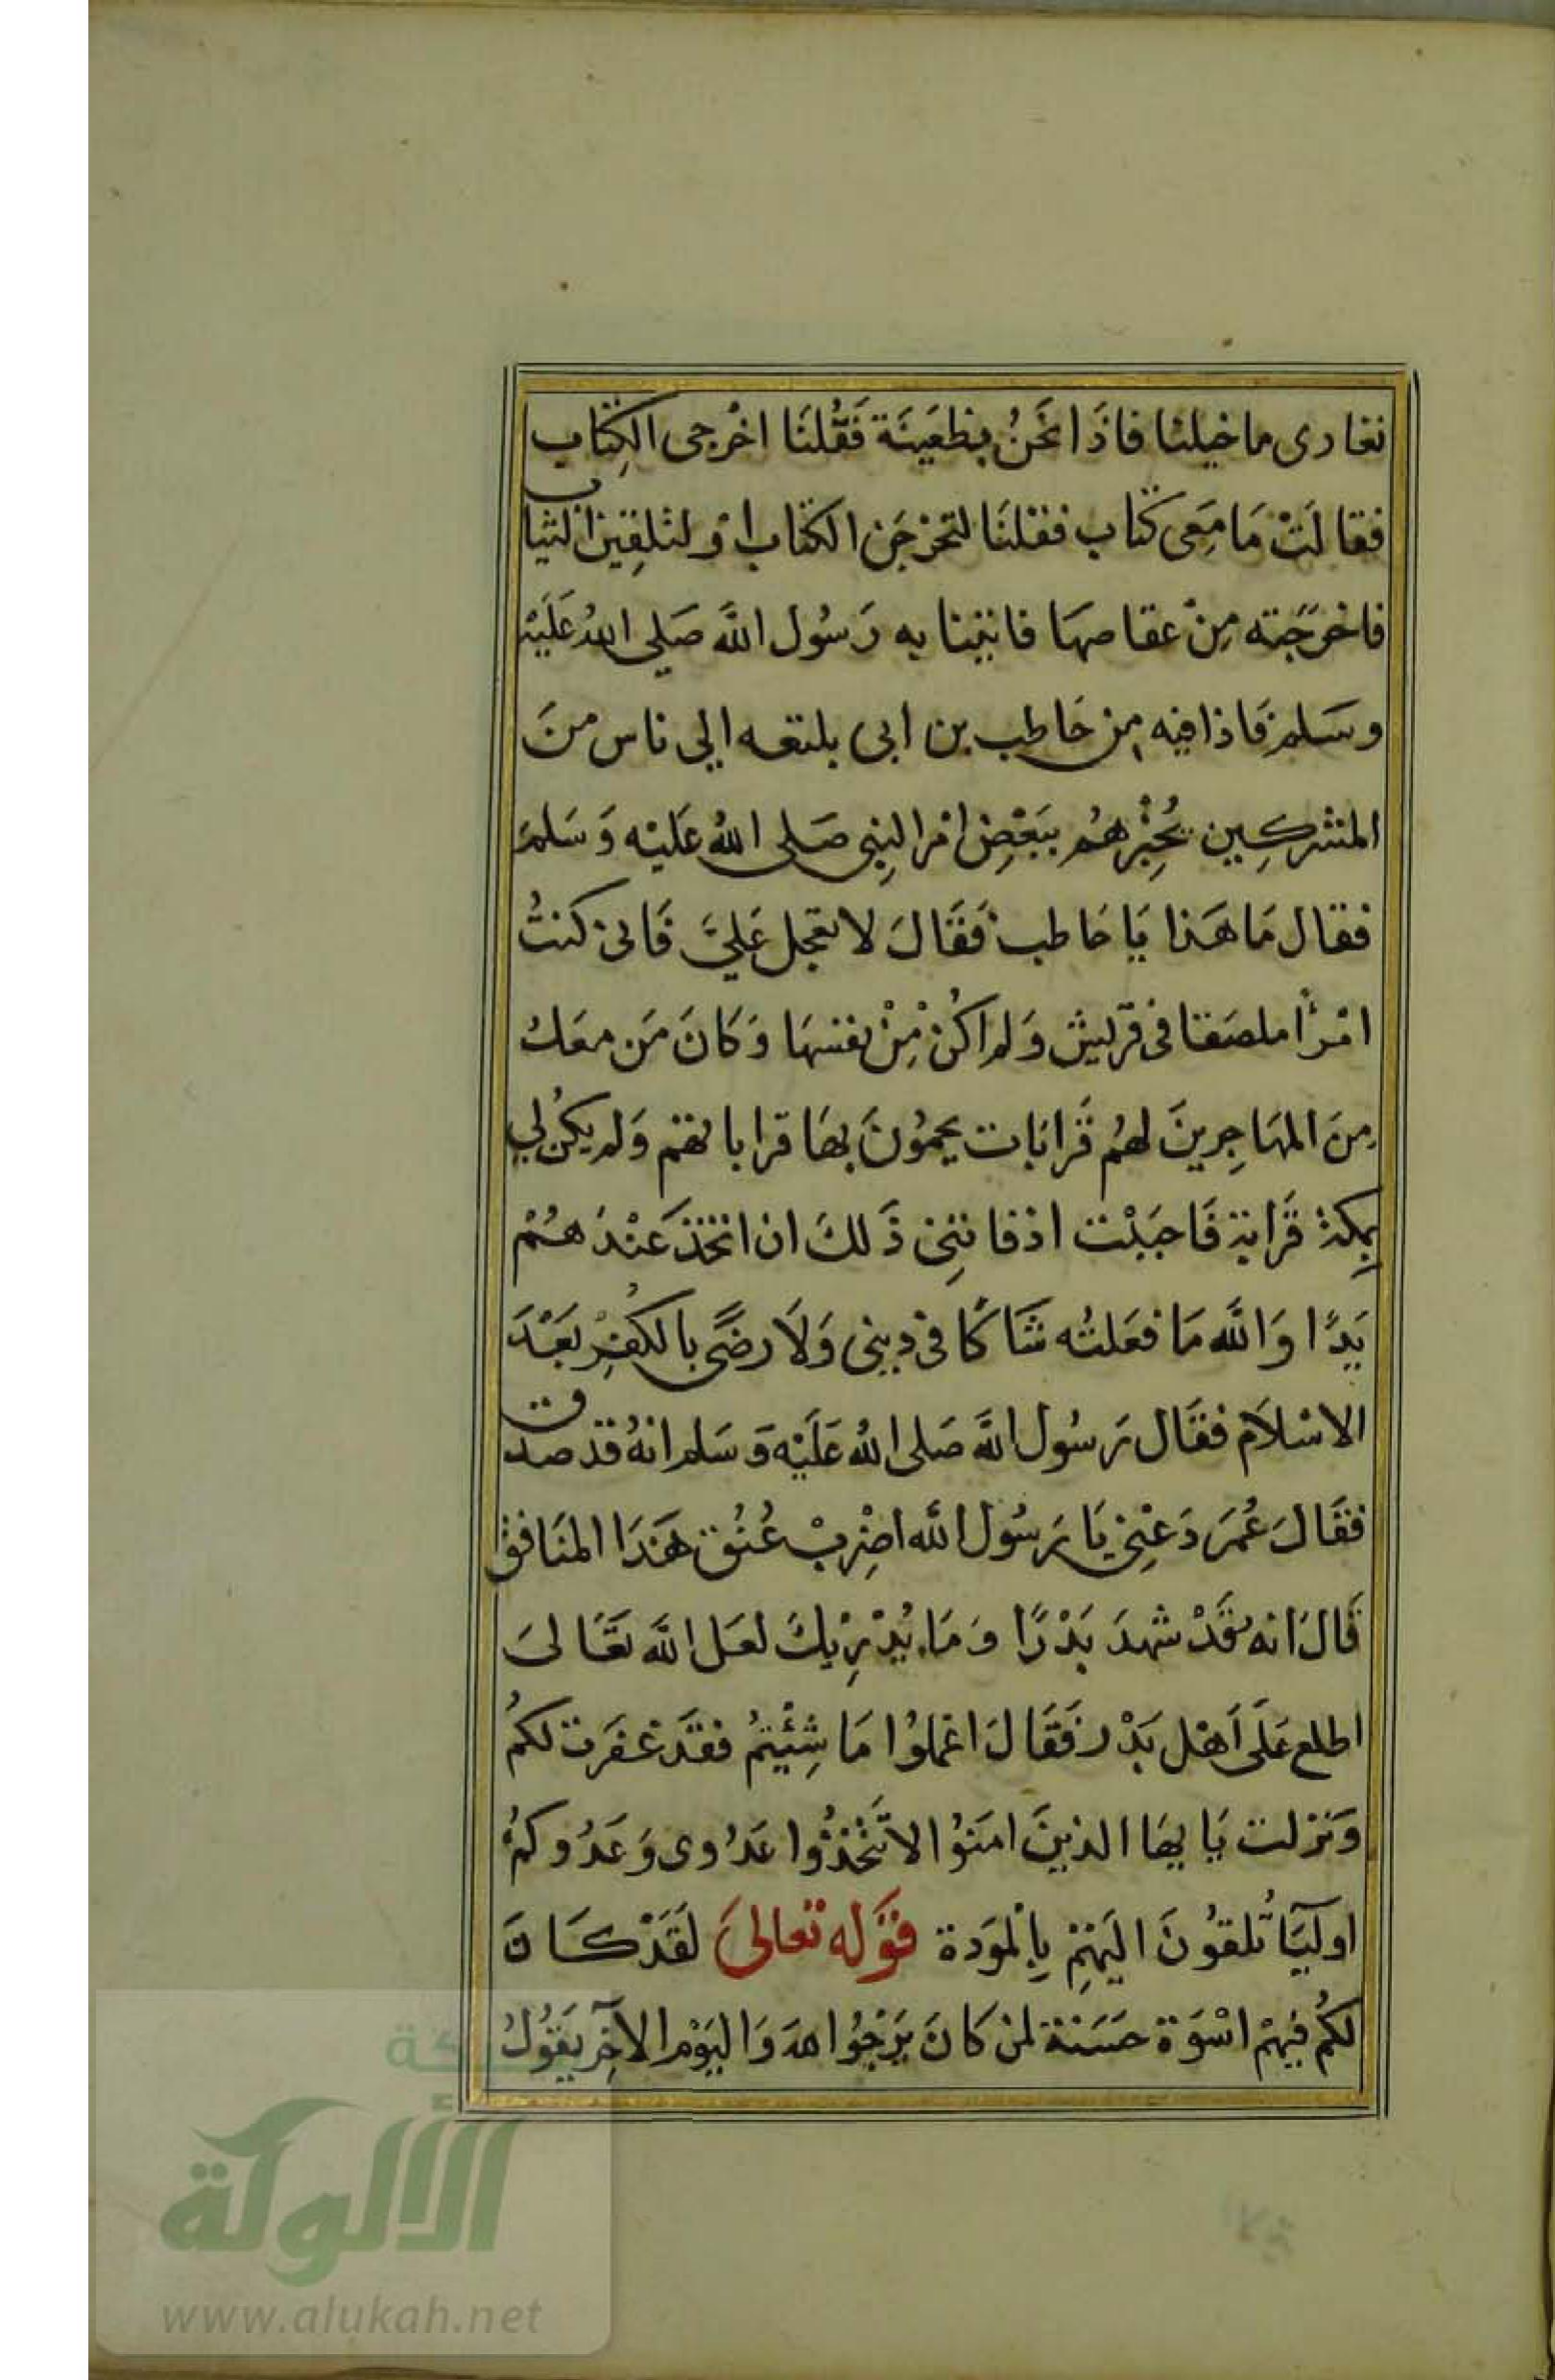 تغادى بنا خيلنا فاذَا نَحَنُ بظعَينَة فَقُلنَا اخْرجى الكِتاب
فقالَتْ مَا مَعِى كتاب فقلنَا لتخرجَن الكتاب اوْ لتلقِين الثياب
فاخرَجَته مِنْ عقاصهَا فاتينا به رَسُول اللَّه صَلى اللهُ عَلَيْه
وسَلم فَاذا فيْه مِن حَاطب بن ابى بلتعه الي ناس منَ
المشركِين يُخبْرهُم ببَعْضِ امْر النبِى صَلى اللهُ عَليْه وَسَلمَ
فقال مَا هَذا يَا حَاطب فَقَالَ لا تعجل عَليَّ فَانى كنتُ
امْرأً ملصَقا فى قرَيش وَلم اكُنْ مِنْ نفسهَا وَكَانَ مَن معَك
مِنَ المهَاجِرينَ لهُم قَرابَات يحمُونَ بهَا قراباتهم وَلم يكُن لي
بِمكة قَرابة فَاحبَبْت اذ فاتنِى ذَلكَ ان اتخذ عَنْدَهُمْ
يَدًا وَاللَّه مَا فعَلتُه شَاكًا فى دِينى وَلَا رضًى بالكُفِر بَعْدَ
الاسْلَام فقَال رَسُول اللَّه صَلى اللهُ عَلَيْه وَسَلم انهُ قد صدق
فقَالَ عُمَر دَعْنِى يَا رَسُول اللَّه اضْرِبْ عُنُق هَذَا المنَافق
قَالَ انه قَدْ شهدَ بَدْرًا وَمَا يُدْرِيْكَ لعَل اللَّه تعَالىَ
اطلع عَلَى اَهْل بَدْر فَقَالَ اعْملُوا مَا شِئْيتُم فقَد غفَرت لكمُ
وَنزلت يَايهَا الذينَ امَنوُا لا تَتَّخذُوا عَدُوى وَعَدُوكمُ
اوليَآ تُلقوُنَ اليَهْمِ بِالْموَدة قوَله تعالىَ لَقَدْ كَانَ
لكُم فيْهِمْ اسْوَة حسَنة لمن كَانَ يَرْجُوا الله وَاليَوْم الآخِر يَقوُلُ
شبكة
الألوكة
www.alukah.net